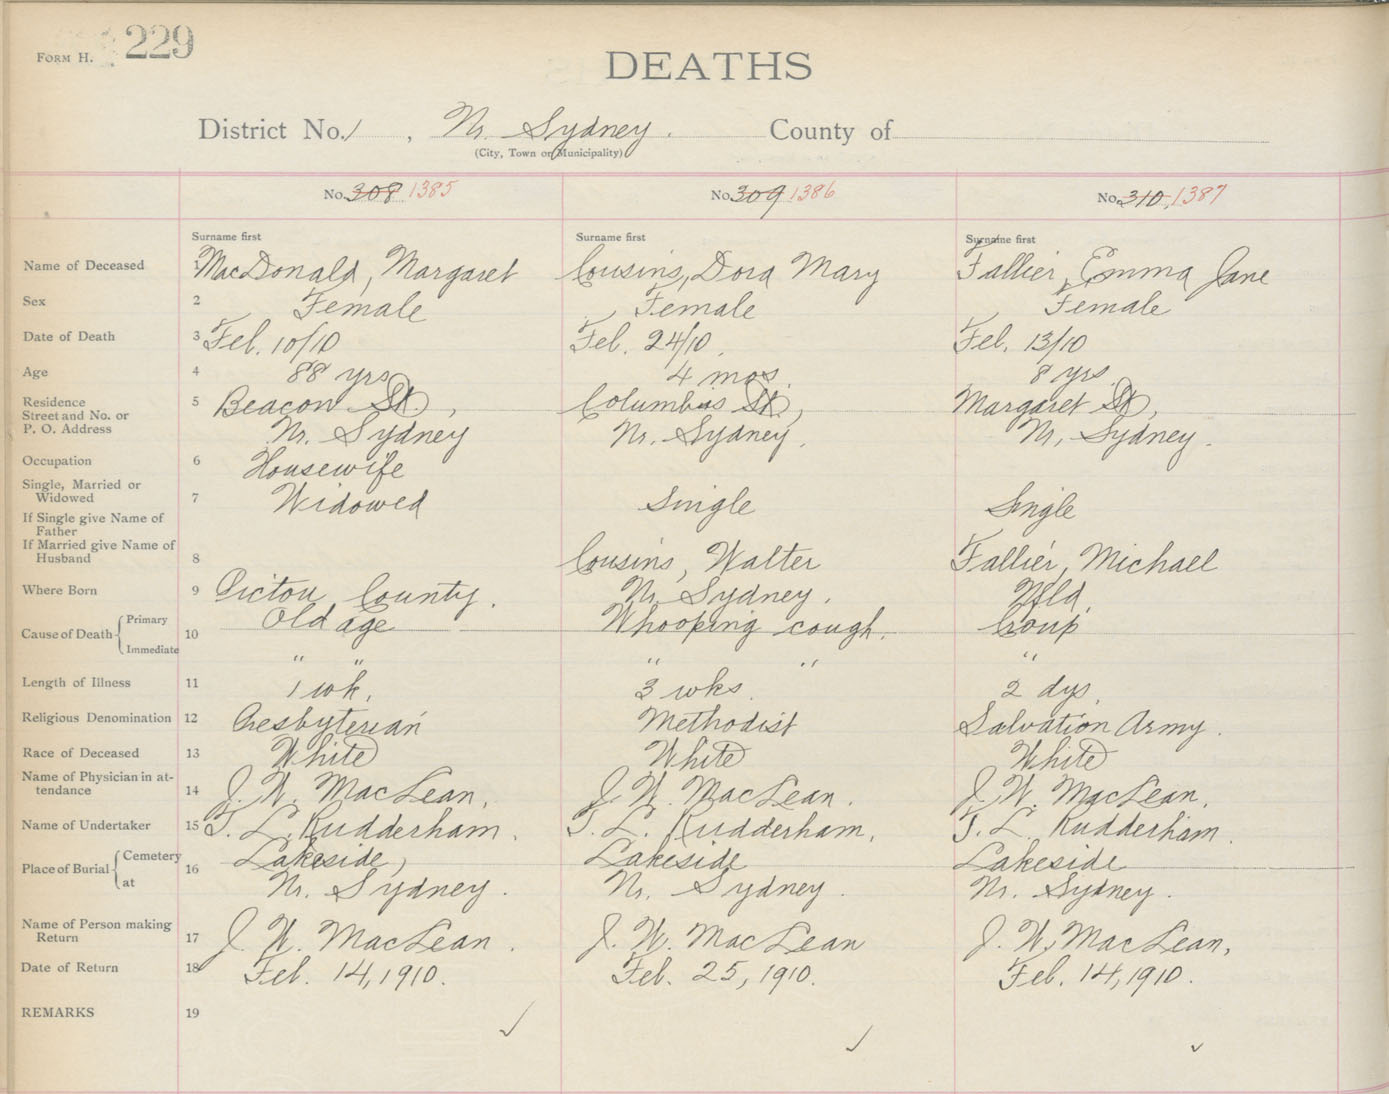 FORM H. 229
DEATHS
District No. 1 , Nr. Sydney. County of
(City, Town or Municipality)
No. 308 1385 No. 309 1386 No. 310, 1387
Surname first Surname first Surname first
Name of Deceased 1 MacDonald, Margaret Cousins, Dora Mary Fallier, Emma Jane
Sex 2 Female Female Female
Date of Death 3 Feb. 10/10 Feb. 24/10. Feb. 13/10
Age 4 88 yrs 4 mos. 8 yrs
Residence 5 Beacon St., Columbus St., Margaret St,
Street and No. or
P. O. Address Nr. Sydney Nr. Sydney. Nr, Sydney.
Occupation 6 Housewife
Single, Married or
Widowed 7 Widowed Single Single
If Single give Name of
Father
If Married give Name of
Husband 8 Cousins, Walter Fallier, Michael
Where Born 9 Pictou County. Nr. Sydney. Nfld
Cause of Death { Primary 10 Old age Whooping cough. Croup
Immediate " " " " "
Length of Illness 11 1 wk. 3 wks. 2 dys.
Religious Denomination 12 Presbyterian Methodist Salvation Army.
Race of Deceased 13 White White White
Name of Physician in at-
tendance 14 J. W. MacLean. J. W. MacLean. J. W. MacLean.
Name of Undertaker 15 T. L. Rudderham. T. L. Rudderham. T. L. Rudderham.
Place of Burial { Cemetery 16 Lakeside, Lakeside Lakeside
at Nr. Sydney. Nr. Sydney. Nr. Sydney.
Name of Person making
Return 17 J. W. MacLean. J. W. MacLean J. W. MacLean,
Date of Return 18 Feb. 14, 1910. Feb. 25, 1910. Feb. 14, 1910.
REMARKS 19 ✓ ✓ ✓